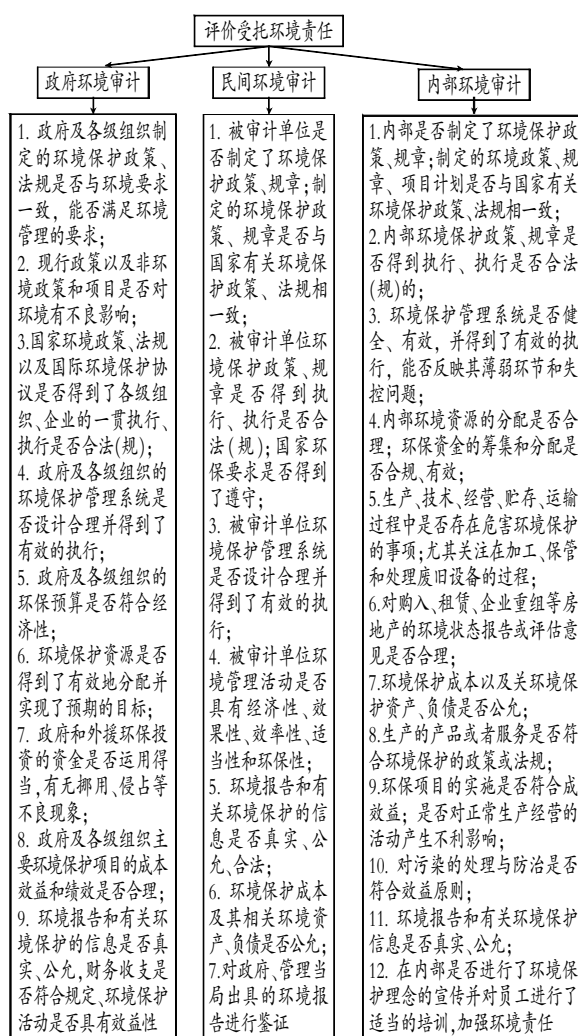 评价受托环境责任
政府环境审计
民间环境审计
内部环境审计
1. 政府及各级组织制
定的环境保护政策、
法规是否与环境要求
一致，能否满足环境
管理的要求；
2. 现行政策以及非环
境政策和项目是否对
环境有不良影响；
3.国家环境政策、法规
以及国际环境保护协
议是否得到了各级组
织、企业的一贯执行、
执行是否合法(规)；
4. 政府及各级组织的
环境保护管理系统是
否设计合理并得到了
有效的执行；
5. 政府及各级组织的
环保预算是否符合经
济性；
6. 环境保护资源是否
得到了有效地分配并
实现了预期的目标；
7. 政府和外援环保投
资的资金是否运用得
当,有无挪用、侵占等
不良现象；
8. 政府及各级组织主
要环境保护项目的成本
效益和绩效是否合理；
9. 环境报告和有关环
境保护的信息是否真
实、公允,财务收支是
否符合规定、环境保护
活动是否具有效益性
1. 被审计单位是
否制定了环境保
护政策、规章；制
定的环境保护政
策、规章是否与
国家有关环境保
护政策、法规相
一致；
2. 被审计单位环
境保护政策、规
章是否得到执
行、执行是否合
法(规)；国家环
保要求是否得到
了遵守；
3. 被审计单位环
境保护管理系统
是否设计合理并
得到了有效的执
行；
4. 被审计单位环
境管理活动是否
具有经济性、效
果性、效率性、适
当性和环保性；
5. 环境报告和有
关环境保护的信
息是否真实、公
允、合法；
6. 环境保护成本
及其相关环境资
产、负债是否公允；
7.对政府、管理当
局出具的环境报
告进行鉴证
1.内部是否制定了环境保护政
策、规章；制定的环境政策、规
章、项目计划是否与国家有关
环境保护政策、法规相一致；
2.内部环境保护政策、规章是
否得到执行、执行是否合法
(规)的；
3. 环境保护管理系统是否健
全、有效，并得到了有效的执
行，能否反映其薄弱环节和失
控问题；
4.内部环境资源的分配是否合
理；环保资金的筹集和分配是
否合规、有效；
5.生产、技术、经营、贮存、运输
过程中是否存在危害环境保护
的事项；尤其关注在加工、保管
和处理废旧设备的过程；
6.对购入、租赁、企业重组等房
地产的环境状态报告或评估意
见是否合理；
7.环境保护成本以及关环境保
护资产、负债是否公允；
8.生产的产品或者服务是否符
合环境保护的政策或法规；
9.环保项目的实施是否符合成
效益；是否对正常生产经营的
活动产生不利影响；
10. 对污染的处理与防治是否
符合效益原则；
11. 环境报告和有关环境保护
信息是否真实、公允；
12. 在内部是否进行了环境保
护理念的宣传并对员工进行了
适当的培训,加强环境责任